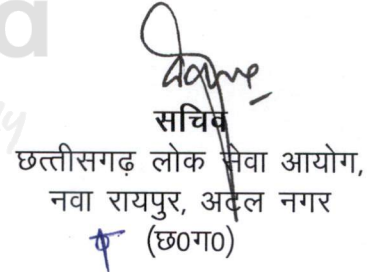 सचिव
छत्तीसगढ़ लोक सेवा आयोग,
नवा रायपुर, अटल नगर
(छ0ग0)